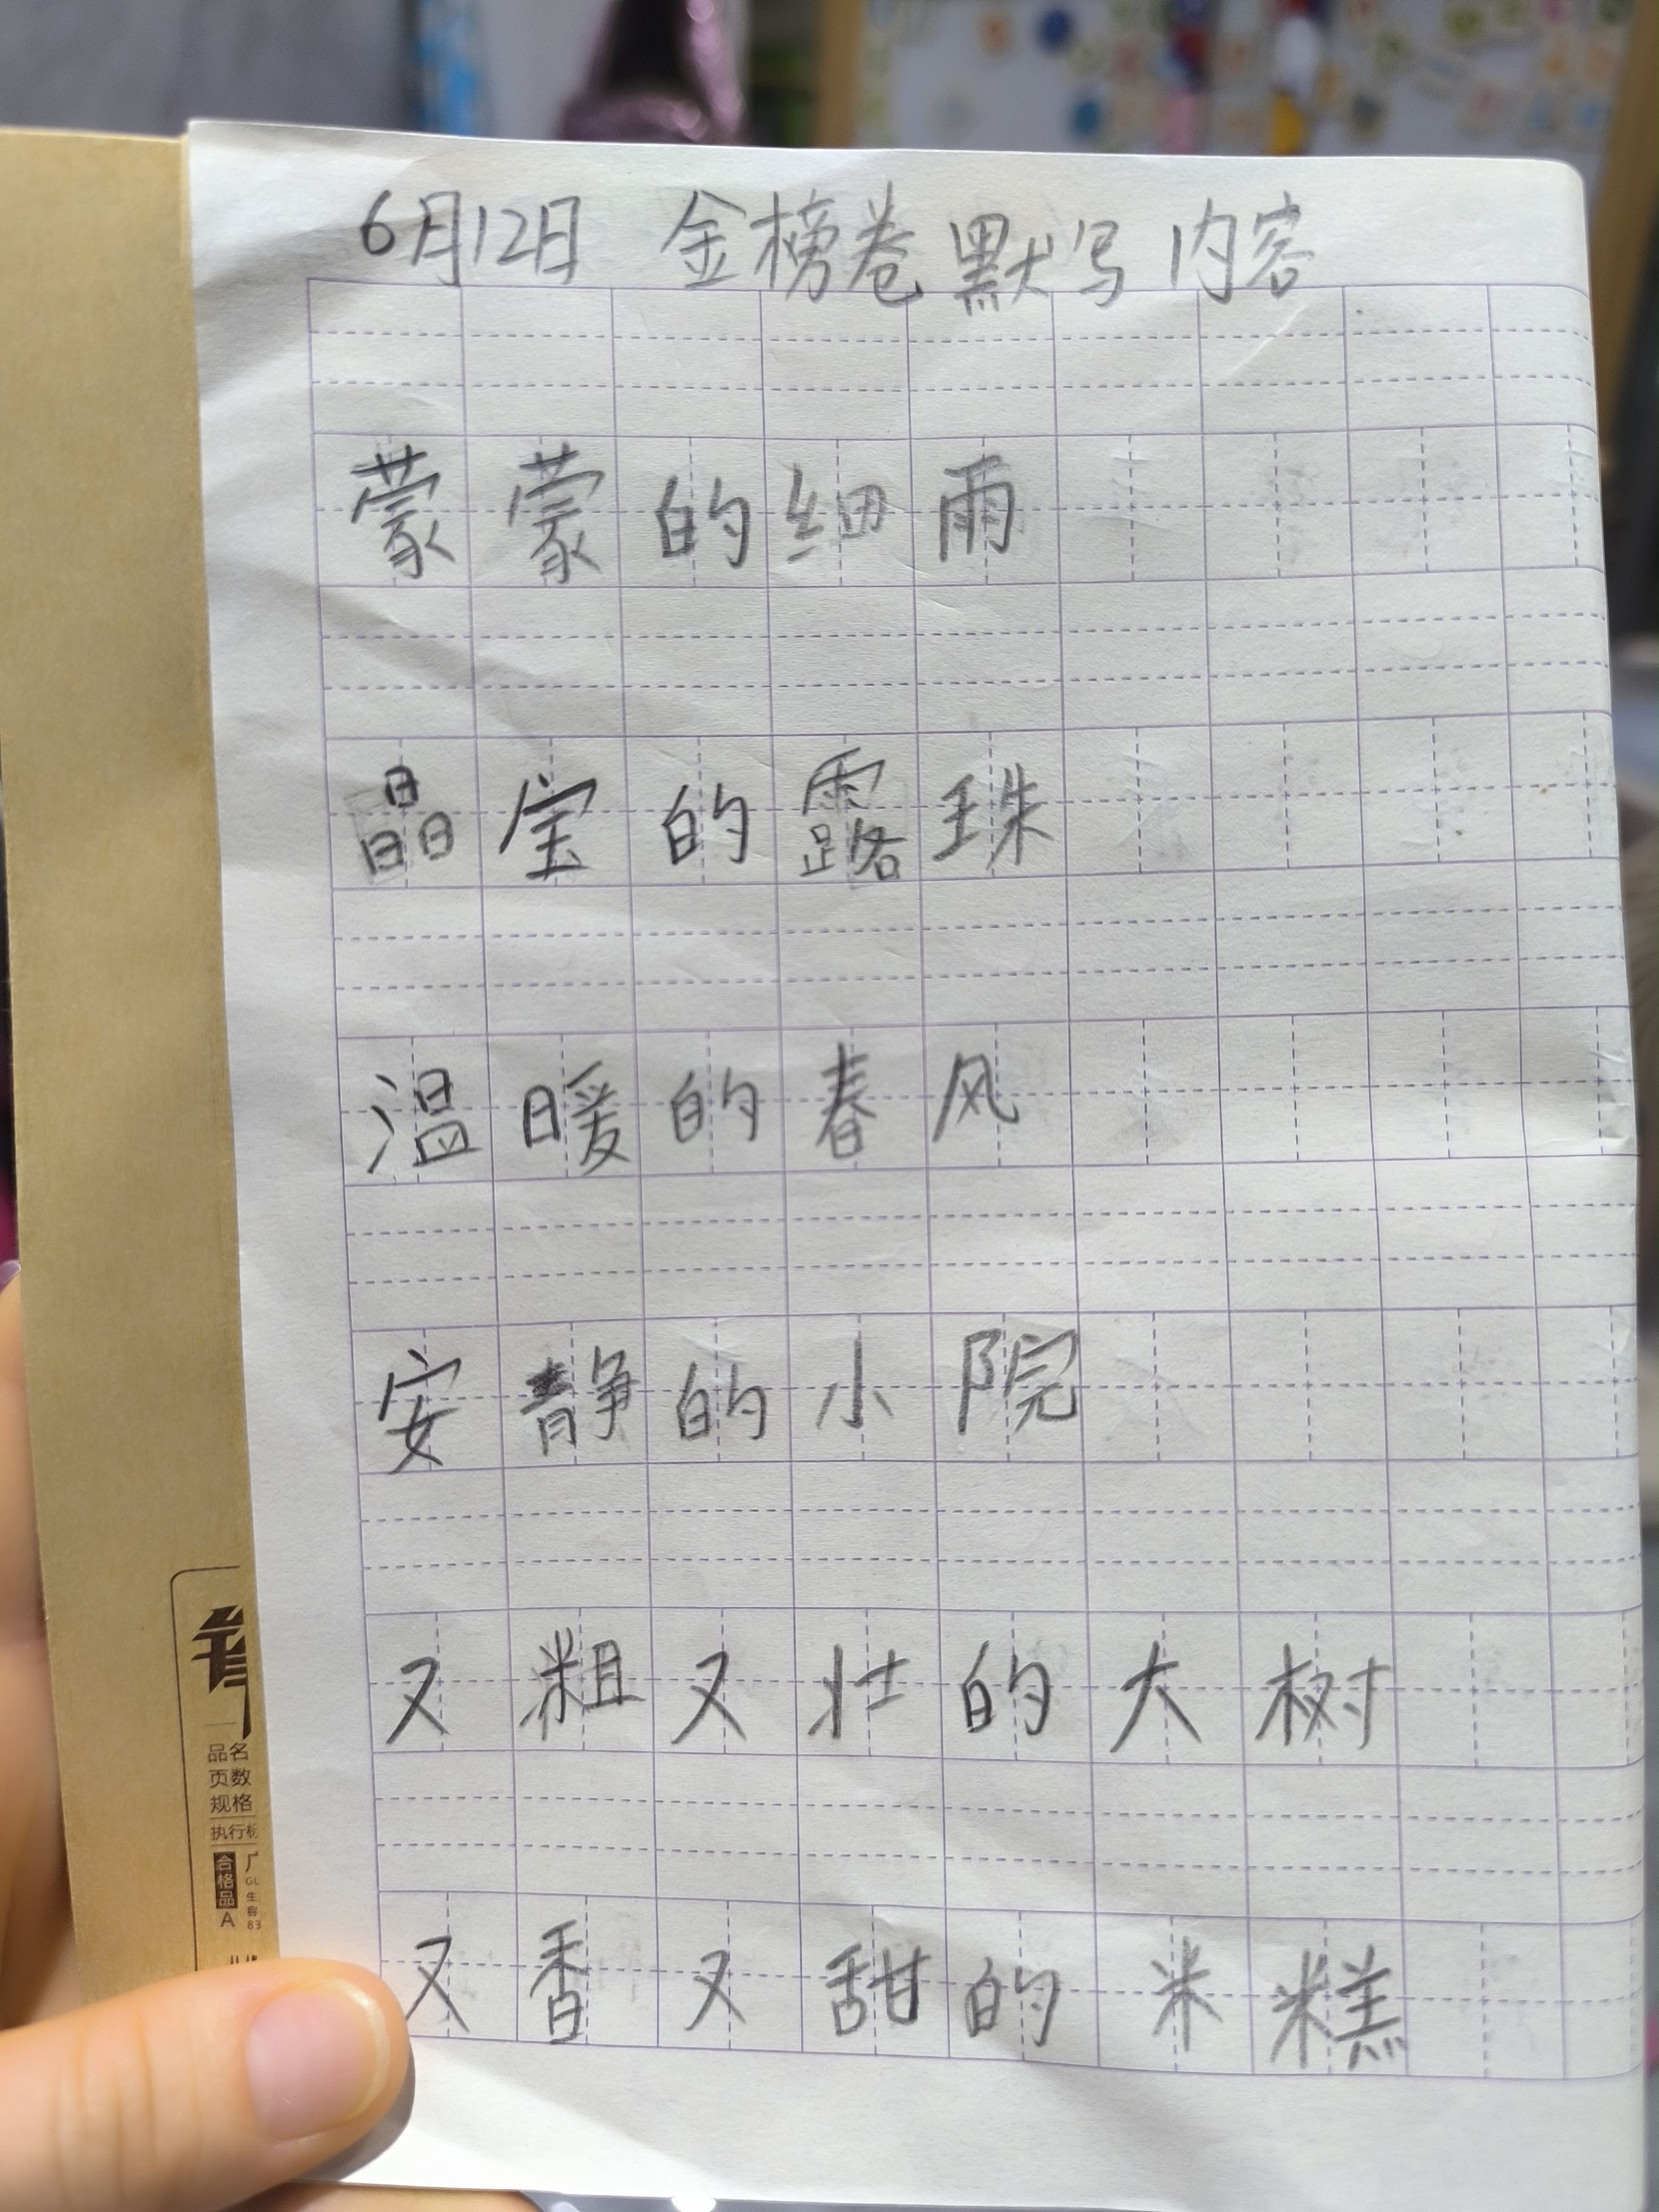 6月12日 金榜卷默写内容
蒙蒙的细雨
晶宝的露珠
温暖的春风
安静的小院
又粗又壮的大树
又香又甜的米糕
品名
页数
规格
执行标
合格品
A